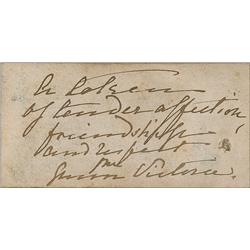 A token
of tender affection,
friendship &
and respect
from Victoria.